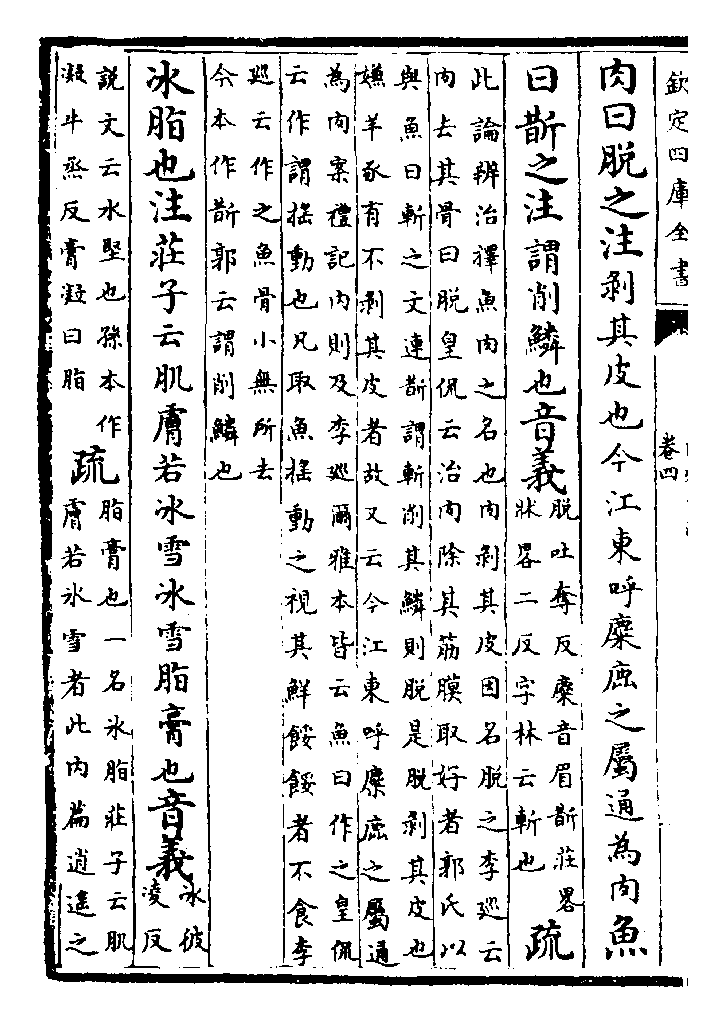 欽定四庫全書
卷四
肉曰脫之注剥其皮也今江東呼麋鹿之屬通為肉魚
曰斮之注謂削鱗也音義
脫吐奪反麋音眉斮莊畧
牀畧二反字林云斬也
疏
此論辨治擇魚肉之名也肉剥其皮因名脫之李廵云
肉去其骨曰脫皇侃云治肉除其筋膜取好者郭氏以
與魚曰斬之文連斮謂斬削其鱗則脫是脫剥其皮也
嫌羊豕有不剥其皮者故又云今江東呼麋鹿之屬通
為肉案禮記内則及李廵爾雅本皆云魚曰作之皇侃
云作謂揺動也凡取魚揺動之視其鮮餒餒者不食李
廵云作之魚骨小無所去
今本作斮郭云謂削鱗也
冰脂也注莊子云肌膚若冰雪冰雪脂膏也音義
冰彼
凌反
說文云水堅也孫本作
凝牛烝反膏凝曰脂
疏
脂膏也一名冰脂莊子云肌
膚若冰雪者此内篇逍遥之